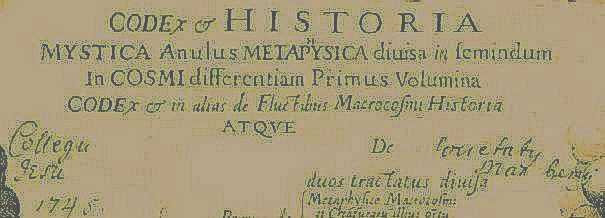 CODEX & HISTORIA
MYSTICA Anulus METAPHYSICA diuisa in semindum
In COSMI differentiam Primus Volumina
CODEX & in alias de Fluctibus Macrocosmi Historia
ATQVE
Collegij De
Jesu
duos tractatus diuisa
1745
Metaphysico Macrocosmi